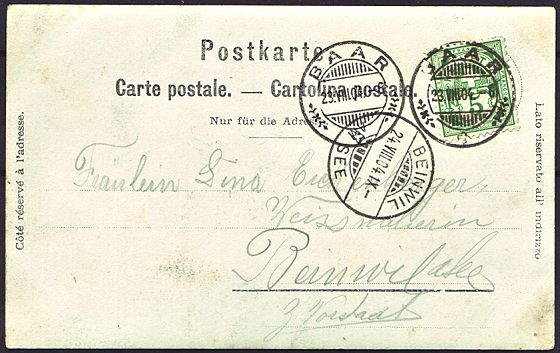 Postkarte.
Carte postale. — Cartolina postale.
Nur für die Adresse
Côté réservé à l'adresse.
Lato riservato all' indirizzo
BAAR
23.VIII.04.
BAAR
23.VIII.04.
5
BEINWIL
24.VIII.04.IX.
SEE
Fräulein Lina
Beinwil a/See